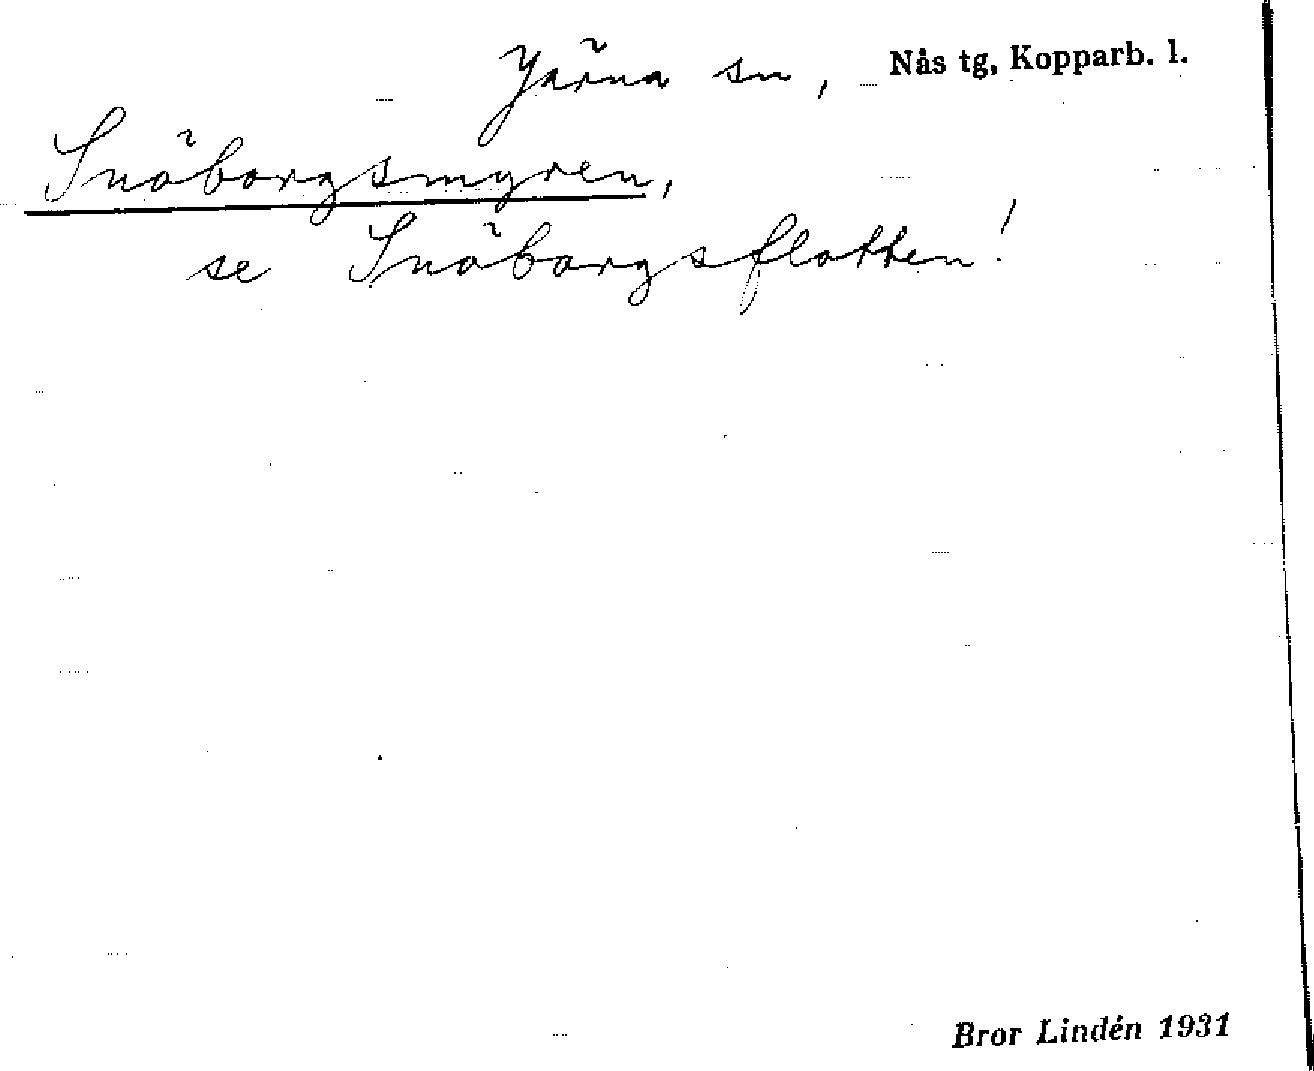 Järna sn, Nås tg, Kopparb. l.
Snöborgsmyren,
se Snöborgsflotten!
Bror Lindén 1931